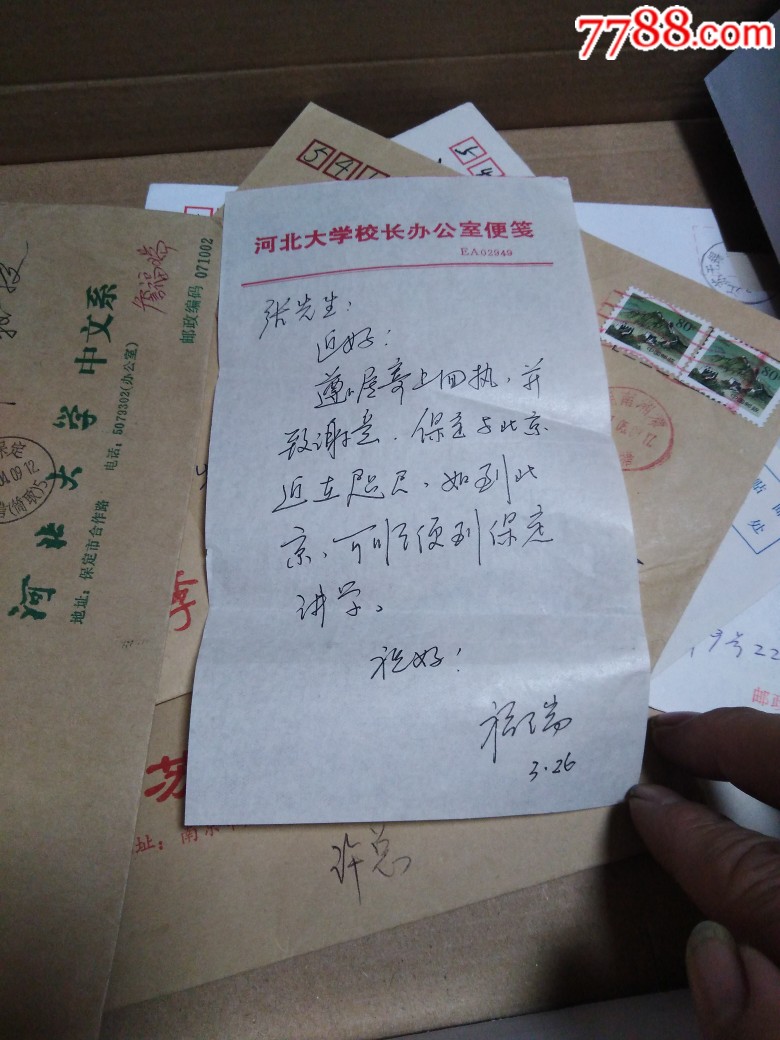 7788.com
河北大学校长办公室便笺
EA02949
张先生：
近好！
遵嘱寄上回执，并
致谢意。保定与北京
近在咫尺，如到北
京，可顺便到保定
讲学。
祝好！
福瑞
3.26
河北大学 中文系
地址：保定市合作路 电话：5079302(办公室)
邮政编码 071002
詹福瑞
5 4
5 4
80
80
苏
址：南京
许总
号22